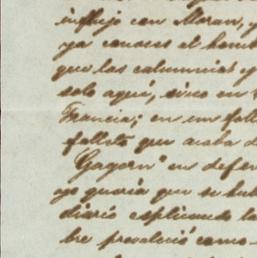 influjo con Moran, y
ya conoces el homb
que las calumnias y
solo aquí, sino en
Francia; en un foll
folleto que acaba d
Gagern" en defen
yo queria que se hub
diario esplicando la
bre prevaleció como